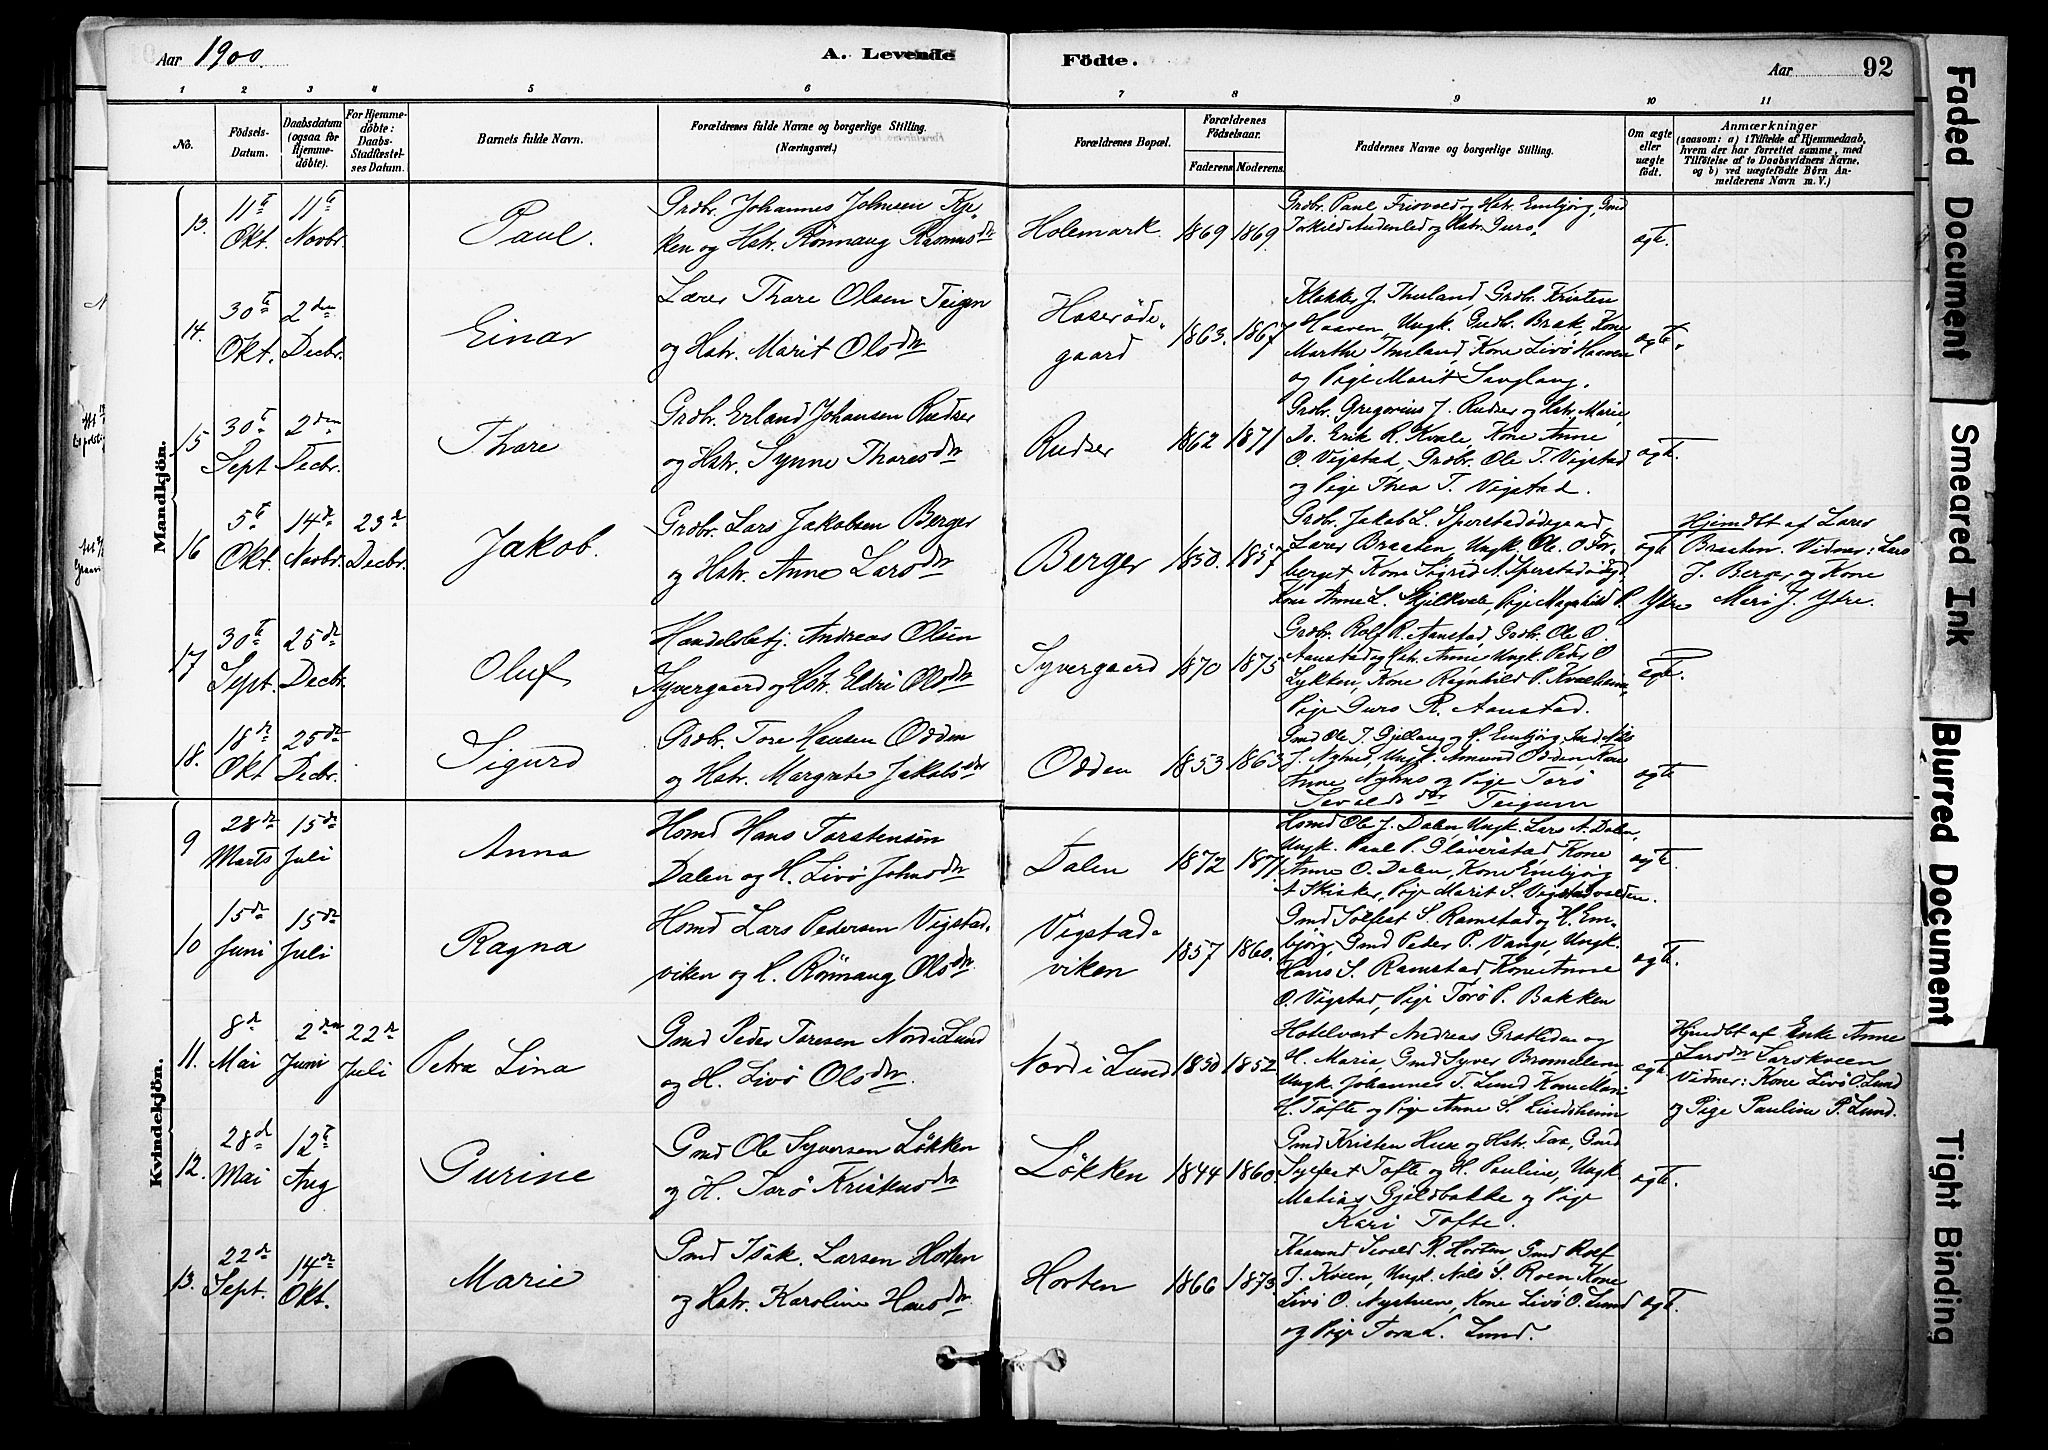 Aar 1900.
A. Levende Födte.
Aar 92
1 2 3 4 5 6 7 8 9 10 11
No.
Födsels-Datum.
Daabsdatum (ogsaa for Hjemme-döbte).
For Hjemme-döbte: Daabs-Stadfæstel-ses Datum.
Barnets fulde Navn.
Forældrenes fulde Navne og borgerlige Stilling. (Næringsvei.)
Forældrenes Bopæl.
Forældrenes Födselsaar.
Faderens Moderens.
Faddernes Navne og borgerlige Stilling.
Om ægte eller uægte födt.
Anmærkninger
(saasom: a) i Tilfælde af Hjemmedaab,
hvem der har forrettet samme, med
Tilföielse af to Daabsvidners Navne,
og b) ved uægtefödte Börn An-
melderens Navn m. V.)
Mandkjön.
13. 11te Okt. 11te Novbr. Paul.
Grdbr. Johannes Johnsen Kje-
ken og Hstr. Rönnaug Rasmusdtr
Holemark. 1869 1869.
Grdbr. Paul Frisvold og Hstr. Embjørg, Gmd
Torkild Audenled og Hstr. Guro.
ægte.
14. 30te Okt. 2den Decbr. Einar
Lærer Thore Olsen Teigen
og Hstr. Marit Olsdtr
Hoserøde-
gaard 1863. 1867
Klokker J. Thuland, Grdbr. Kristen
Haaven, Ungk. Gudbr. Brak, Kone
Marthe Thuland, Kone Livö Haaven
og Pige Marit Sauglang.
ægte.
15 30te Sept 2den Decbr. Thore
Grdbr. Erland Johansen Rudser
og Hstr. Synne Thoresdtr
Rudser 1862 1871
Grdbr. Gregorius J. Rudser og Hstr. Marie,
Do. Erik R. Kvale, Kone Anne
O. Vigstad, Grdbr. Ole T. Vigstad
og Pige Thea T. Vigstad.
ægte.
16 5te Okt. 14de Novbr. 23de Decbr. Jakob.
Grdbr. Lars Jakobsen Berger
og Hstr. Anne Larsdtr
Berger 1850. 1857
Grdbr. Jakob L. Sperstadödegaard,
Lærer Braaten, Ungk. Ole O. For-
berget Kone Sigrid A. Sperstadödegd
Kone Anne L. Skjelkvale, Pige Magnhild P. Ydre
ægte
Hjemdbt af Lærer
Braaten. Vidner: Lars
J. Berger og Kone
Mari J. Ydre.
17 30te Sept. 25de Decbr. Oluf
Handelsbetj. Andreas Olsen
Syvergaard og Hstr. Eldri Olsdtr
Syvergaard 1870 1875
Grdbr. Rolf R. Aanstad, Grdbr. Ole O.
Aanstad og Hstr. Anne Ungk. Peder O
Lykken, Kone Ragnhild P. Kvalheim,
Pige Guro R. Aanstad.
ægte.
18. 18de Okt 25de Decbr. Sigurd
Grdbr. Tore Hansen Odden
og Hstr. Margrete Jakobsdtr
Odden 1853 1863
Gmd Ole J. Gjeilang og H. Embjörg, Gmd Nils
J. Nyhus, Ungk. Amund Odden, Kone
Anne Nyhus og Pige Torö
Sevaldsdtr Teigum
ægte
Kvindekjön.
9 28de Marts 15de Juli Anna
Homd Hans Torstensön
Dalen og H. Livö Johnsdtr
Dalen 1872 1871
Homd Ole J. Dalen, Ungk. Lars A. Dalen,
Ungk. Paul P. Glaverstad Kone
Anne O. Dalen, Kone Embjörg
A Skisker, Pige Marit S. Vigstadvolden.
ægte.
10 15de Juni 15de Juli Ragna
Homd Lars Pedersen Vigstad-
viken og H. Rönnaug Olsdtr
Vigstad-
viken 1857 1860.
Gmd Tolfest S. Ramstad og H. Em-
björg, Gmd Peder P. Vange, Ungk.
Hans S. Ramstad Kone Anne
O. Vigstad, Pige Torö P. Bakken
ægte.
11. 8de Mai 2den Juni 22de Juli Petra Lina
Gmd Peder Toresen Nord i Lund
og H. Livö Olsdtr.
Nord i Lund 1850 1852
Hotelvært Andreas Gratleden og
H. Maria, Gmd Syver Brommellem,
Ungk. Johannes T. Lund Kone Mari
H. Tofte og Pige Anne S. Lindsheim
ægte.
Hjemdbt af Enke Anne
Larsdtr Larskveen
Vidner: Kone Livö O. Lund
og Pige Pauline P. Lund.
12. 28de Mai 12te Aug Gurine
Gmd Ole Syversen Lökken
og H. Torö Kristensdtr
Lökken 1844 1860
Gmd Kristen Hue og Hstr. Tea, Gmd
Syvert Tofte og H. Pauline, Ungk
Matias Gjeldbakke og Pige
Kari Tofte.
ægte.
13. 22de Sept. 14de Okt. Marie
Gmd Isak Larsen Horten
og Hstr. Karoline Hansdtr
Horten 1866 1873.
Kaarmd Sevald R. Horten, Gmd Rolf
J. Kveen, Ungk. Nils S. Roen Kone
Livö O. Nystuen, Kone Livö O. Lund
og Pige Tora L. Lund.
ægte.
Faded Document
Smeared Ink
Blurred Document
Tight Binding